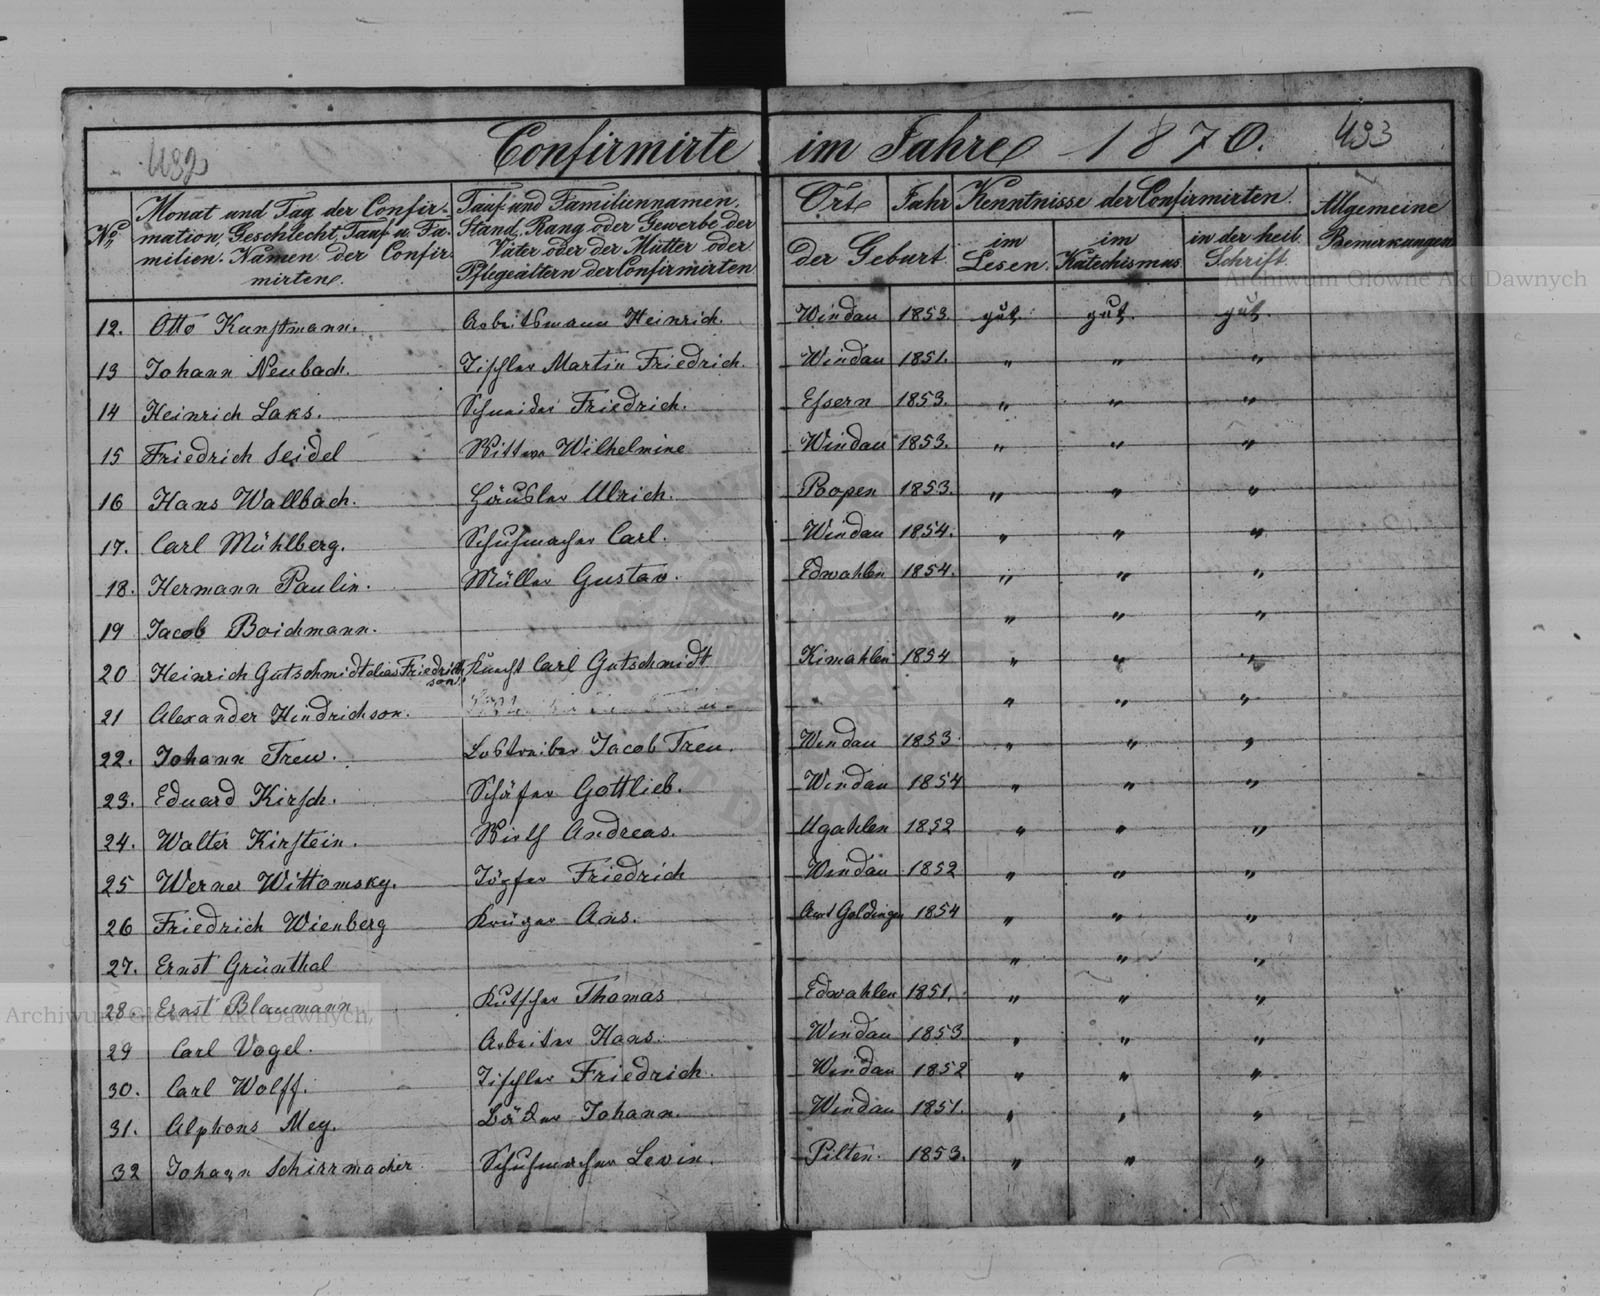 432
Confirmirte im Jahre 1870.
433
No
Monat und Tag der Confir-
mation, Geschlecht, Tauf u. Fa-
milien-Namen der Confir-
mirten.
Tauf und Familiennamen,
Stand, Rang oder Gewerbe der
Väter oder der Mütter oder
Pflegeältern der Confirmirten
Ort
Jahr
der Geburt
Kenntnisse der Confirmirten.
im
Lesen.
im
Katechismus
in der heil.
Schrift.
Allgemeine
Bemerkungen
12. Otto Kunstmann. Arbeitsmann Heinrich. Windau 1853. gut. gut. gut.
13 Johann Neubach. Tischler Martin Friedrich. Windau 1851. " " "
14 Heinrich Laks. Schneider Friedrich. Essern 1853. " " "
15 Friedrich Seidel Wittwe Wilhelmine Windau 1853. " " "
16 Hans Wallbach. Häusler Ulrich. Popen 1853. " " "
17. Carl Mühlberg. Schuhmacher Carl. Windau 1854. " " "
18. Hermann Paulin. Müller Gustav. Edwahlen 1854. " " "
19 Jacob Boichmann. " " "
20 Heinrich Gutschmidt alias Friedrich
son. Knecht Carl Gutschmidt Kimahlen 1854 " " "
21 Alexander Hindrichson. " " "
22. Johann Treu. Lostreiber Jacob Treu. Windau 1853. " " "
23. Eduard Kirsch. Schäfer Gottlieb. Windau 1854 " " "
24. Walter Kirstein. Wirth Andreas. Ugahlen 1852 " " "
25 Werner Wittomsky. Töpfer Friedrich Windau 1852 " " "
26 Friedrich Wienberg Krüger Ans. Amt Goldingen 1854 " " "
27. Ernst Grünthal " " "
28. Ernst Blaumann Kutscher Thomas Edwahlen 1851. " " "
29 Carl Vogel. Arbeiter Hans. Windau 1853 " " "
30. Carl Wolff. Tischler Friedrich. Windau 1852 " " "
31. Alphons Mey. Böttcher Johann. Windau 1851. " " "
32 Johann Schirrmacher Schuhmacher Levin. Pilten. 1853. " " "
Archiwum Główne Akt Dawnych
Archiwum Główne Akt Dawnych,